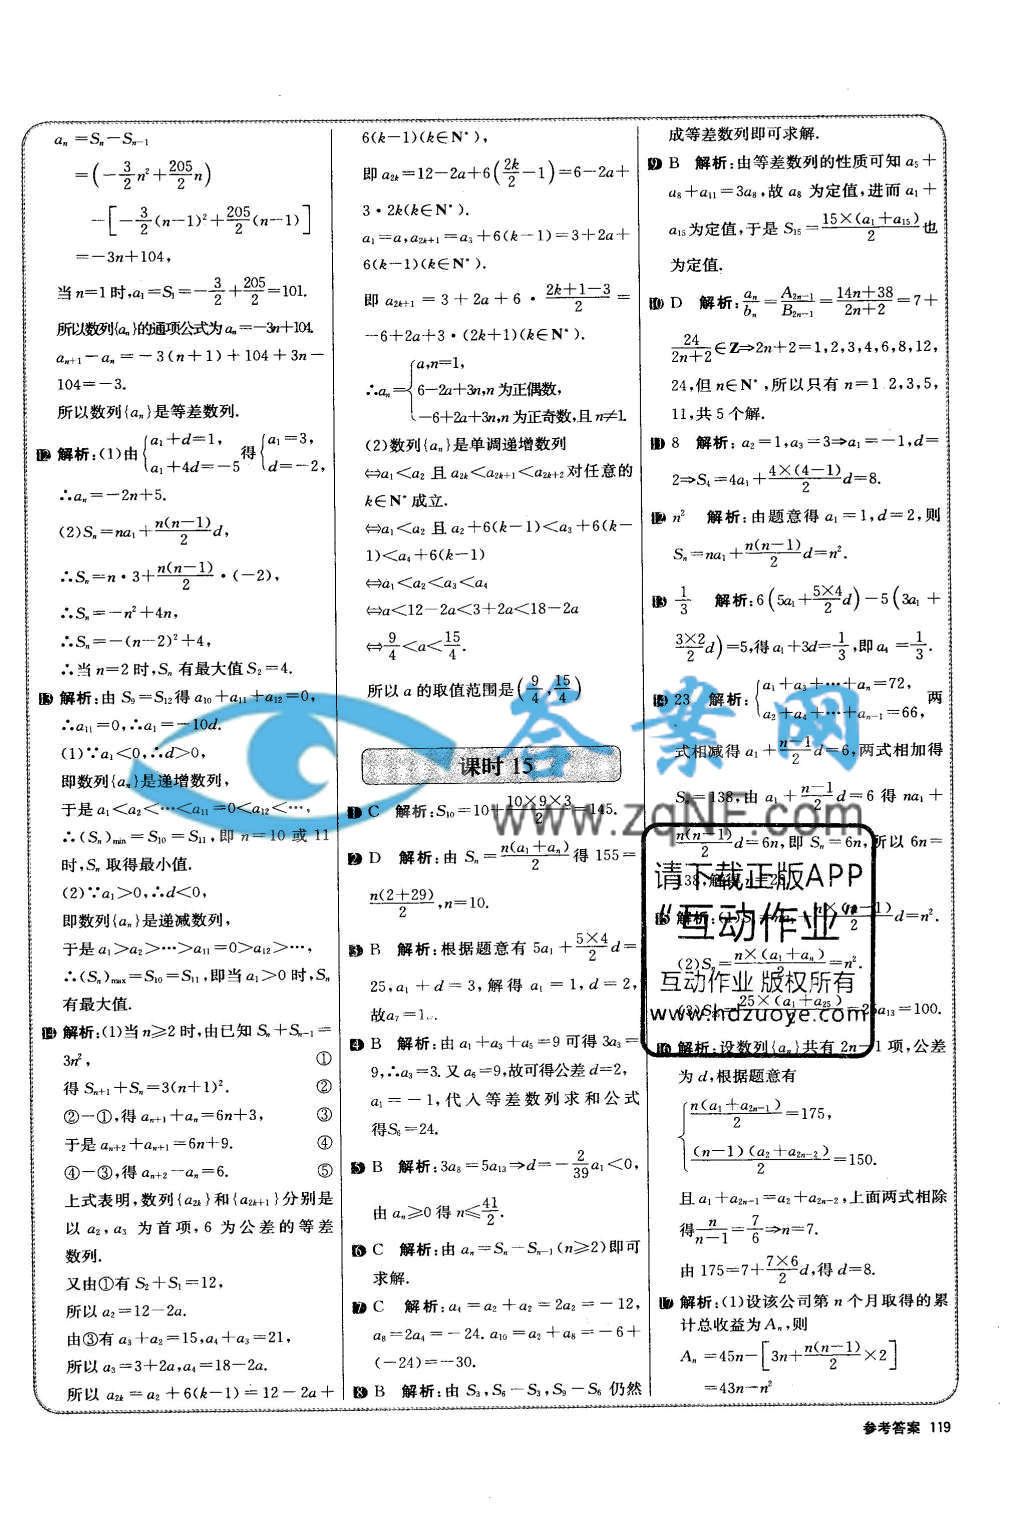 aₙ=Sₙ-Sₙ₋₁
=(-3/2 n²+205/2 n)
-[-3/2 (n-1)²+205/2 (n-1)]
=-3n+104,
当n=1时,a₁=S₁=-3/2+205/2=101.
所以数列{aₙ}的通项公式为aₙ=-3n+104.
aₙ₊₁-aₙ=-3(n+1)+104+3n-
104=-3.
所以数列{aₙ}是等差数列.
12 解析:(1)由{a₁+d=1, a₁+4d=-5 得{a₁=3, d=-2,
∴aₙ=-2n+5.
(2)Sₙ=na₁+n(n-1)/2 d,
∴Sₙ=n·3+n(n-1)/2·(-2),
∴Sₙ=-n²+4n,
∴Sₙ=-(n-2)²+4,
∴当n=2时,Sₙ有最大值S₂=4.
13 解析:由S₉=S₁₂得a₁₀+a₁₁+a₁₂=0,
∴a₁₁=0,∴a₁=-10d.
(1)∵a₁<0,∴d>0,
即数列{aₙ}是递增数列,
于是a₁<a₂<…<a₁₁=0<a₁₂<…,
∴(Sₙ)min=S₁₀=S₁₁,即n=10或11
时,Sₙ取得最小值.
(2)∵a₁>0,∴d<0,
即数列{aₙ}是递减数列,
于是a₁>a₂>…>a₁₁=0>a₁₂>…,
∴(Sₙ)max=S₁₀=S₁₁,即当a₁>0时,Sₙ
有最大值.
14 解析:(1)当n≥2时,由已知Sₙ+Sₙ₋₁=
3n², ①
得Sₙ₊₁+Sₙ=3(n+1)². ②
②-①,得aₙ₊₁+aₙ=6n+3, ③
于是aₙ₊₂+aₙ₊₁=6n+9. ④
④-③,得aₙ₊₂-aₙ=6. ⑤
上式表明,数列{a₂ₖ}和{a₂ₖ₊₁}分别是
以a₂,a₃为首项,6为公差的等差
数列.
又由①有S₂+S₁=12,
所以a₂=12-2a.
由③有a₃+a₂=15,a₄+a₃=21,
所以a₃=3+2a,a₄=18-2a.
所以a₂ₖ=a₂+6(k-1)=12-2a+
6(k-1)(k∈N*),
即a₂ₖ=12-2a+6(2k/2-1)=6-2a+
3·2k(k∈N*).
a₁=a,a₂ₖ₊₁=a₃+6(k-1)=3+2a+
6(k-1)(k∈N*).
即a₂ₖ₊₁=3+2a+6·(2k+1-3)/2=
-6+2a+3·(2k+1)(k∈N*).
∴aₙ={a,n=1,
6-2a+3n,n为正偶数,
-6+2a+3n,n为正奇数,且n≠1.
(2)数列{aₙ}是单调递增数列
⇔a₁<a₂且a₂ₖ<a₂ₖ₊₁<a₂ₖ₊₂对任意的
k∈N*成立.
⇔a₁<a₂且a₂+6(k-1)<a₃+6(k-
1)<a₄+6(k-1)
⇔a₁<a₂<a₃<a₄
⇔a<12-2a<3+2a<18-2a
⇔9/4<a<15/4.
所以a的取值范围是(9/4,15/4)
课时15
1 C 解析:S₁₀=10+(10×9×3)/2=145.
2 D 解析:由Sₙ=n(a₁+aₙ)/2得155=
n(2+29)/2,n=10.
3 B 解析:根据题意有5a₁+(5×4)/2 d=
25,a₁+d=3,解得a₁=1,d=2,
故a₇=1
4 B 解析:由a₁+a₃+a₅=9可得3a₃=
9,∴a₃=3.又a₆=9,故可得公差d=2,
a₁=-1,代入等差数列求和公式
得S₆=24.
5 B 解析:3a₈=5a₁₃⇒d=-2/39 a₁<0,
由aₙ≥0得n≤41/2.
6 C 解析:由aₙ=Sₙ-Sₙ₋₁(n≥2)即可
求解.
7 C 解析:a₄=a₂+a₂=2a₂=-12,
a₈=2a₄=-24.a₁₀=a₂+a₈=-6+
(-24)=-30.
8 B 解析:由S₃,S₆-S₃,S₉-S₆仍然
成等差数列即可求解.
9 B 解析:由等差数列的性质可知a₅+
a₈+a₁₁=3a₈,故a₈为定值,进而a₁+
a₁₅为定值,于是S₁₅=15×(a₁+a₁₅)/2也
为定值.
10 D 解析:aₙ/bₙ=A₂ₙ₋₁/B₂ₙ₋₁=(14n+38)/(2n+2)=7+
24/(2n+2)∈Z⇒2n+2=1,2,3,4,6,8,12,
24,但n∈N*,所以只有n=1 2,3,5,
11,共5个解.
11 8 解析:a₂=1,a₃=3⇒a₁=-1,d=
2⇒S₄=4a₁+4×(4-1)/2 d=8.
12 n² 解析:由题意得a₁=1,d=2,则
Sₙ=na₁+n(n-1)/2 d=n².
13 1/3 解析:6(5a₁+(5×4)/2 d)-5(3a₁+
(3×2)/2 d)=5,得a₁+3d=1/3,即a₄=1/3.
14 23 解析:{a₁+a₃+…+aₙ=72, a₂+a₄+…+aₙ₋₁=66, 两
式相减得a₁+(n-1)/2 d=6,两式相加得
Sₙ=138,由a₁+(n-1)/2 d=6得na₁+
n(n-1)/2 d=6n,即Sₙ=6n,所以6n=
138,解得n=
15 解析:(1) d=n².
(2)Sₙ=n×(a₁+aₙ)/2=n².
25×(a₁+a₂₅) a₁₃=100.
16 解析:设数列{aₙ}共有2n-1项,公差
为d,根据题意有
{n(a₁+a₂ₙ₋₁)/2=175,
(n-1)(a₂+a₂ₙ₋₂)/2=150.
且a₁+a₂ₙ₋₁=a₂+a₂ₙ₋₂,上面两式相除
得n/(n-1)=7/6⇒n=7.
由175=7+(7×6)/2 d,得d=8.
17 解析:(1)设该公司第n个月取得的累
计总收益为Aₙ,则
Aₙ=45n-[3n+n(n-1)/2×2]
=43n-n²
答案网
www.zqNE.com
请下载正版APP
“互动作业”
互动作业 版权所有
www.hdzuoye.com
参考答案 119